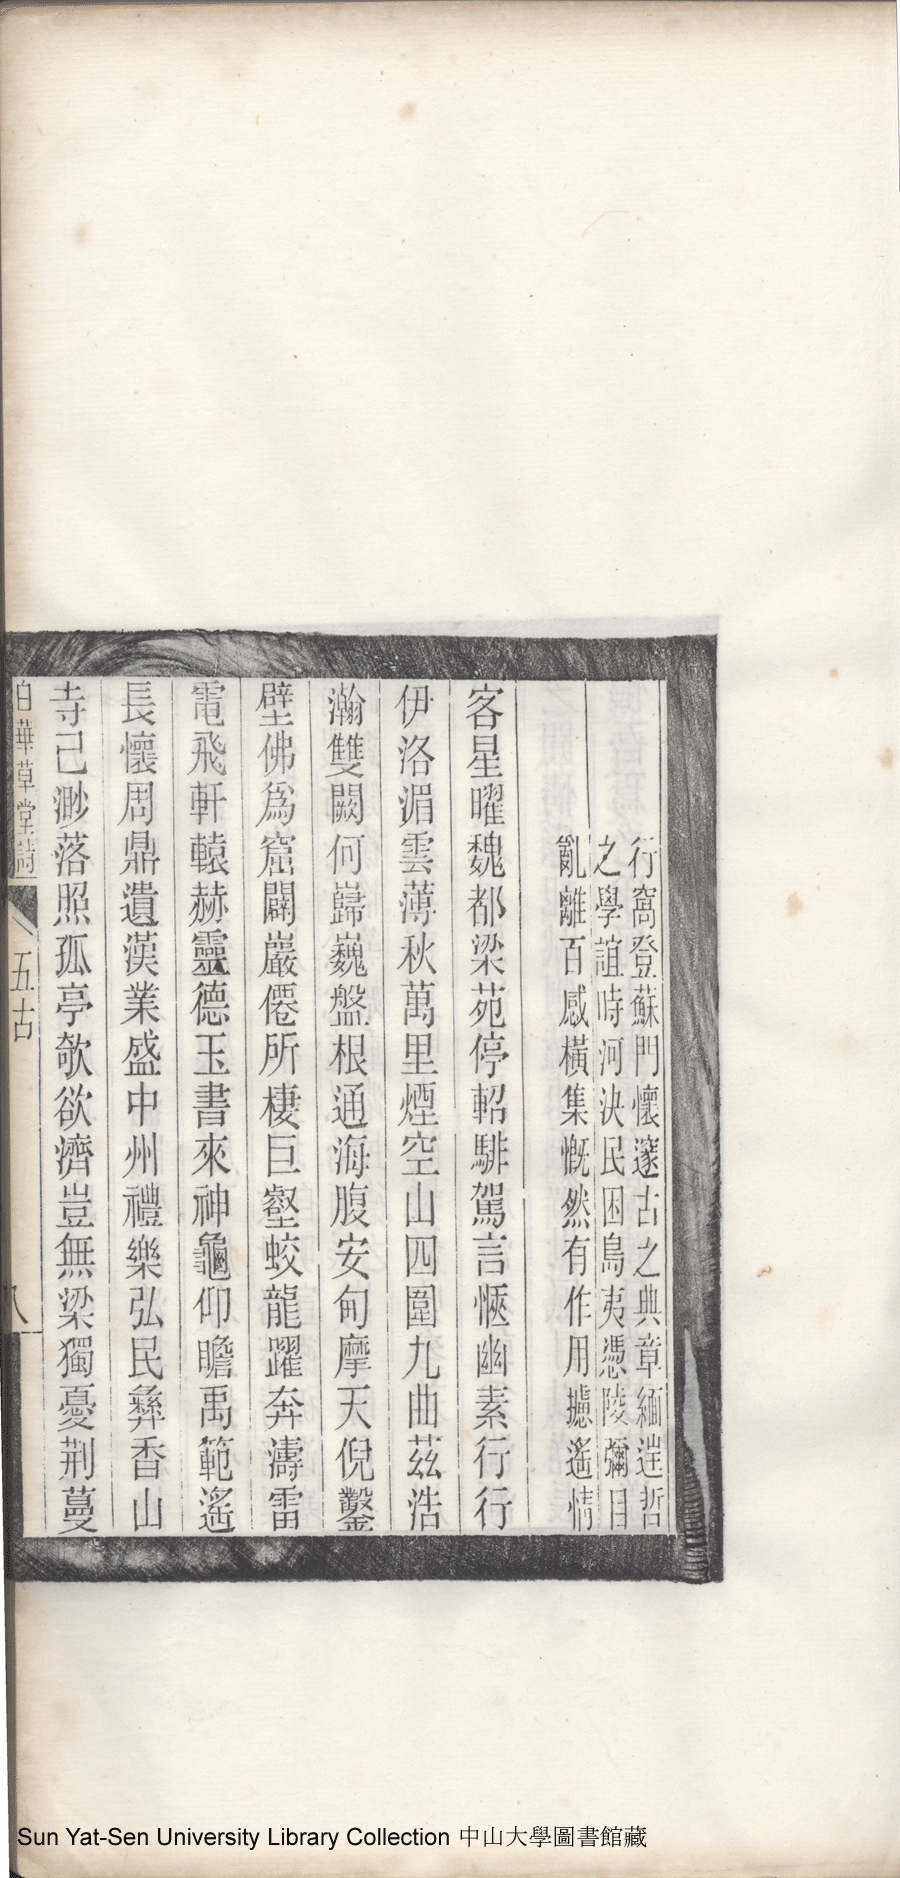 行窩登蘇門懷邃古之典章緬逞哲
之學誼時河決民困鳥夷憑陵彌目
亂離百感橫集慨然有作用攄遙情
客星曜魏都梁苑停軺騑駕言愜幽素行行
伊洛湄雲薄秋萬里煙空山四圍九曲茲浩
瀚雙闕何巋巍盤根通海腹安甸摩天倪鑿
壁佛為窟闢巖僊所棲巨壑蛟龍躍奔濤雷
電飛軒轅赫靈德玉書來神龜仰瞻禹範遙
長懷周鼎遺漢業盛中州禮樂弘民彝香山
寺已渺落照孤亭欹欲濟豈無梁獨憂荆蔓
白華草堂詩 五古 八
Sun Yat-Sen University Library Collection 中山大學圖書館藏